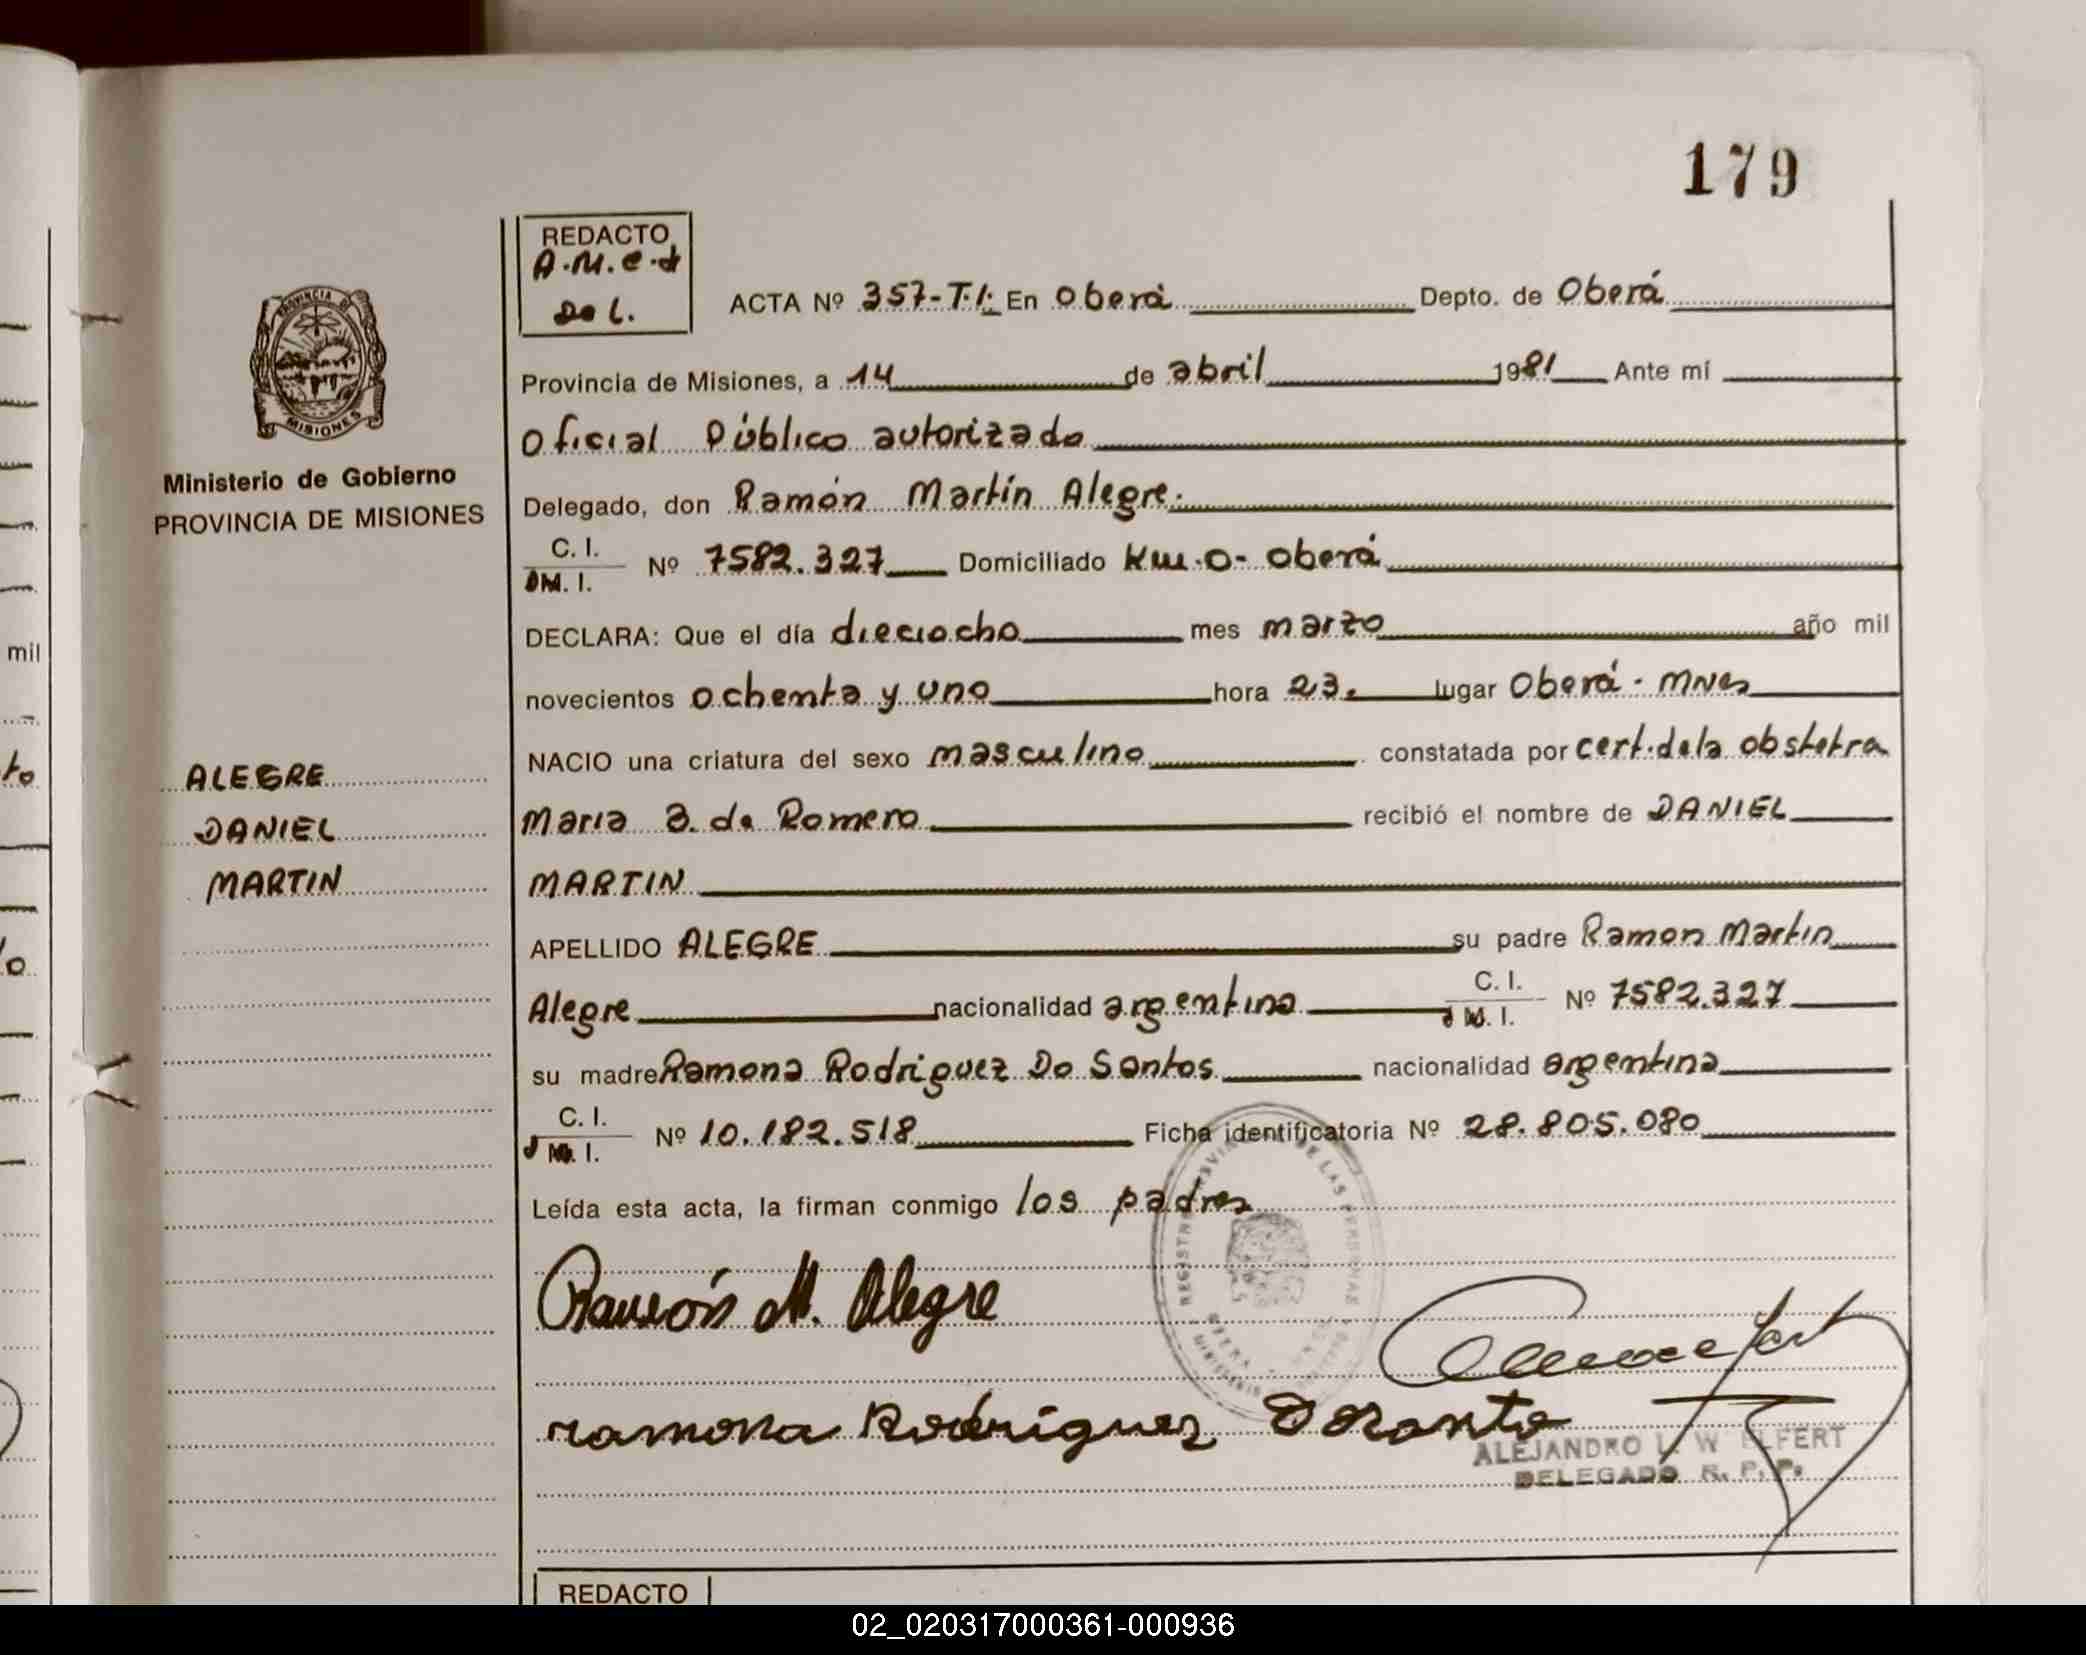 179
REDACTO
A.M.e.d
Do L.
ACTA Nº 357-T.I: En Oberá Depto. de Oberá
Provincia de Misiones, a 14 de abril 1981 Ante mí
Oficial Público autorizado
Delegado, don Ramón Martín Alegre.
C. I.
M. I.
Nº 7582.327 Domiciliado Km.0- Oberá
DECLARA: Que el día dieciocho mes marzo año mil
novecientos ochenta y uno hora 23. lugar Oberá - Mnes
NACIO una criatura del sexo masculino constatada por cert. de la obstetra
Maria B. de Romero recibió el nombre de DANIEL
MARTIN
APELLIDO ALEGRE su padre Ramon Martin
Alegre nacionalidad argentina
C. I.
M. I.
Nº 7582.327
su madre Ramona Rodriguez Do Santos nacionalidad argentina
C. I.
M. I.
Nº 10.182.518 Ficha identificatoria Nº 28.805.080
Leída esta acta, la firman conmigo los padres
Ramón M. Alegre
ramona Rodriguez Dosanto
ALEJANDRO L. W ELFERT
DELEGADO R. P. P.
REDACTO
PROVINCIA DE
MISIONES
Ministerio de Gobierno
PROVINCIA DE MISIONES
ALEGRE
DANIEL
MARTIN
mil
to
REGISTRO PROVIN DE LAS PERSONAS
02_020317000361-000936